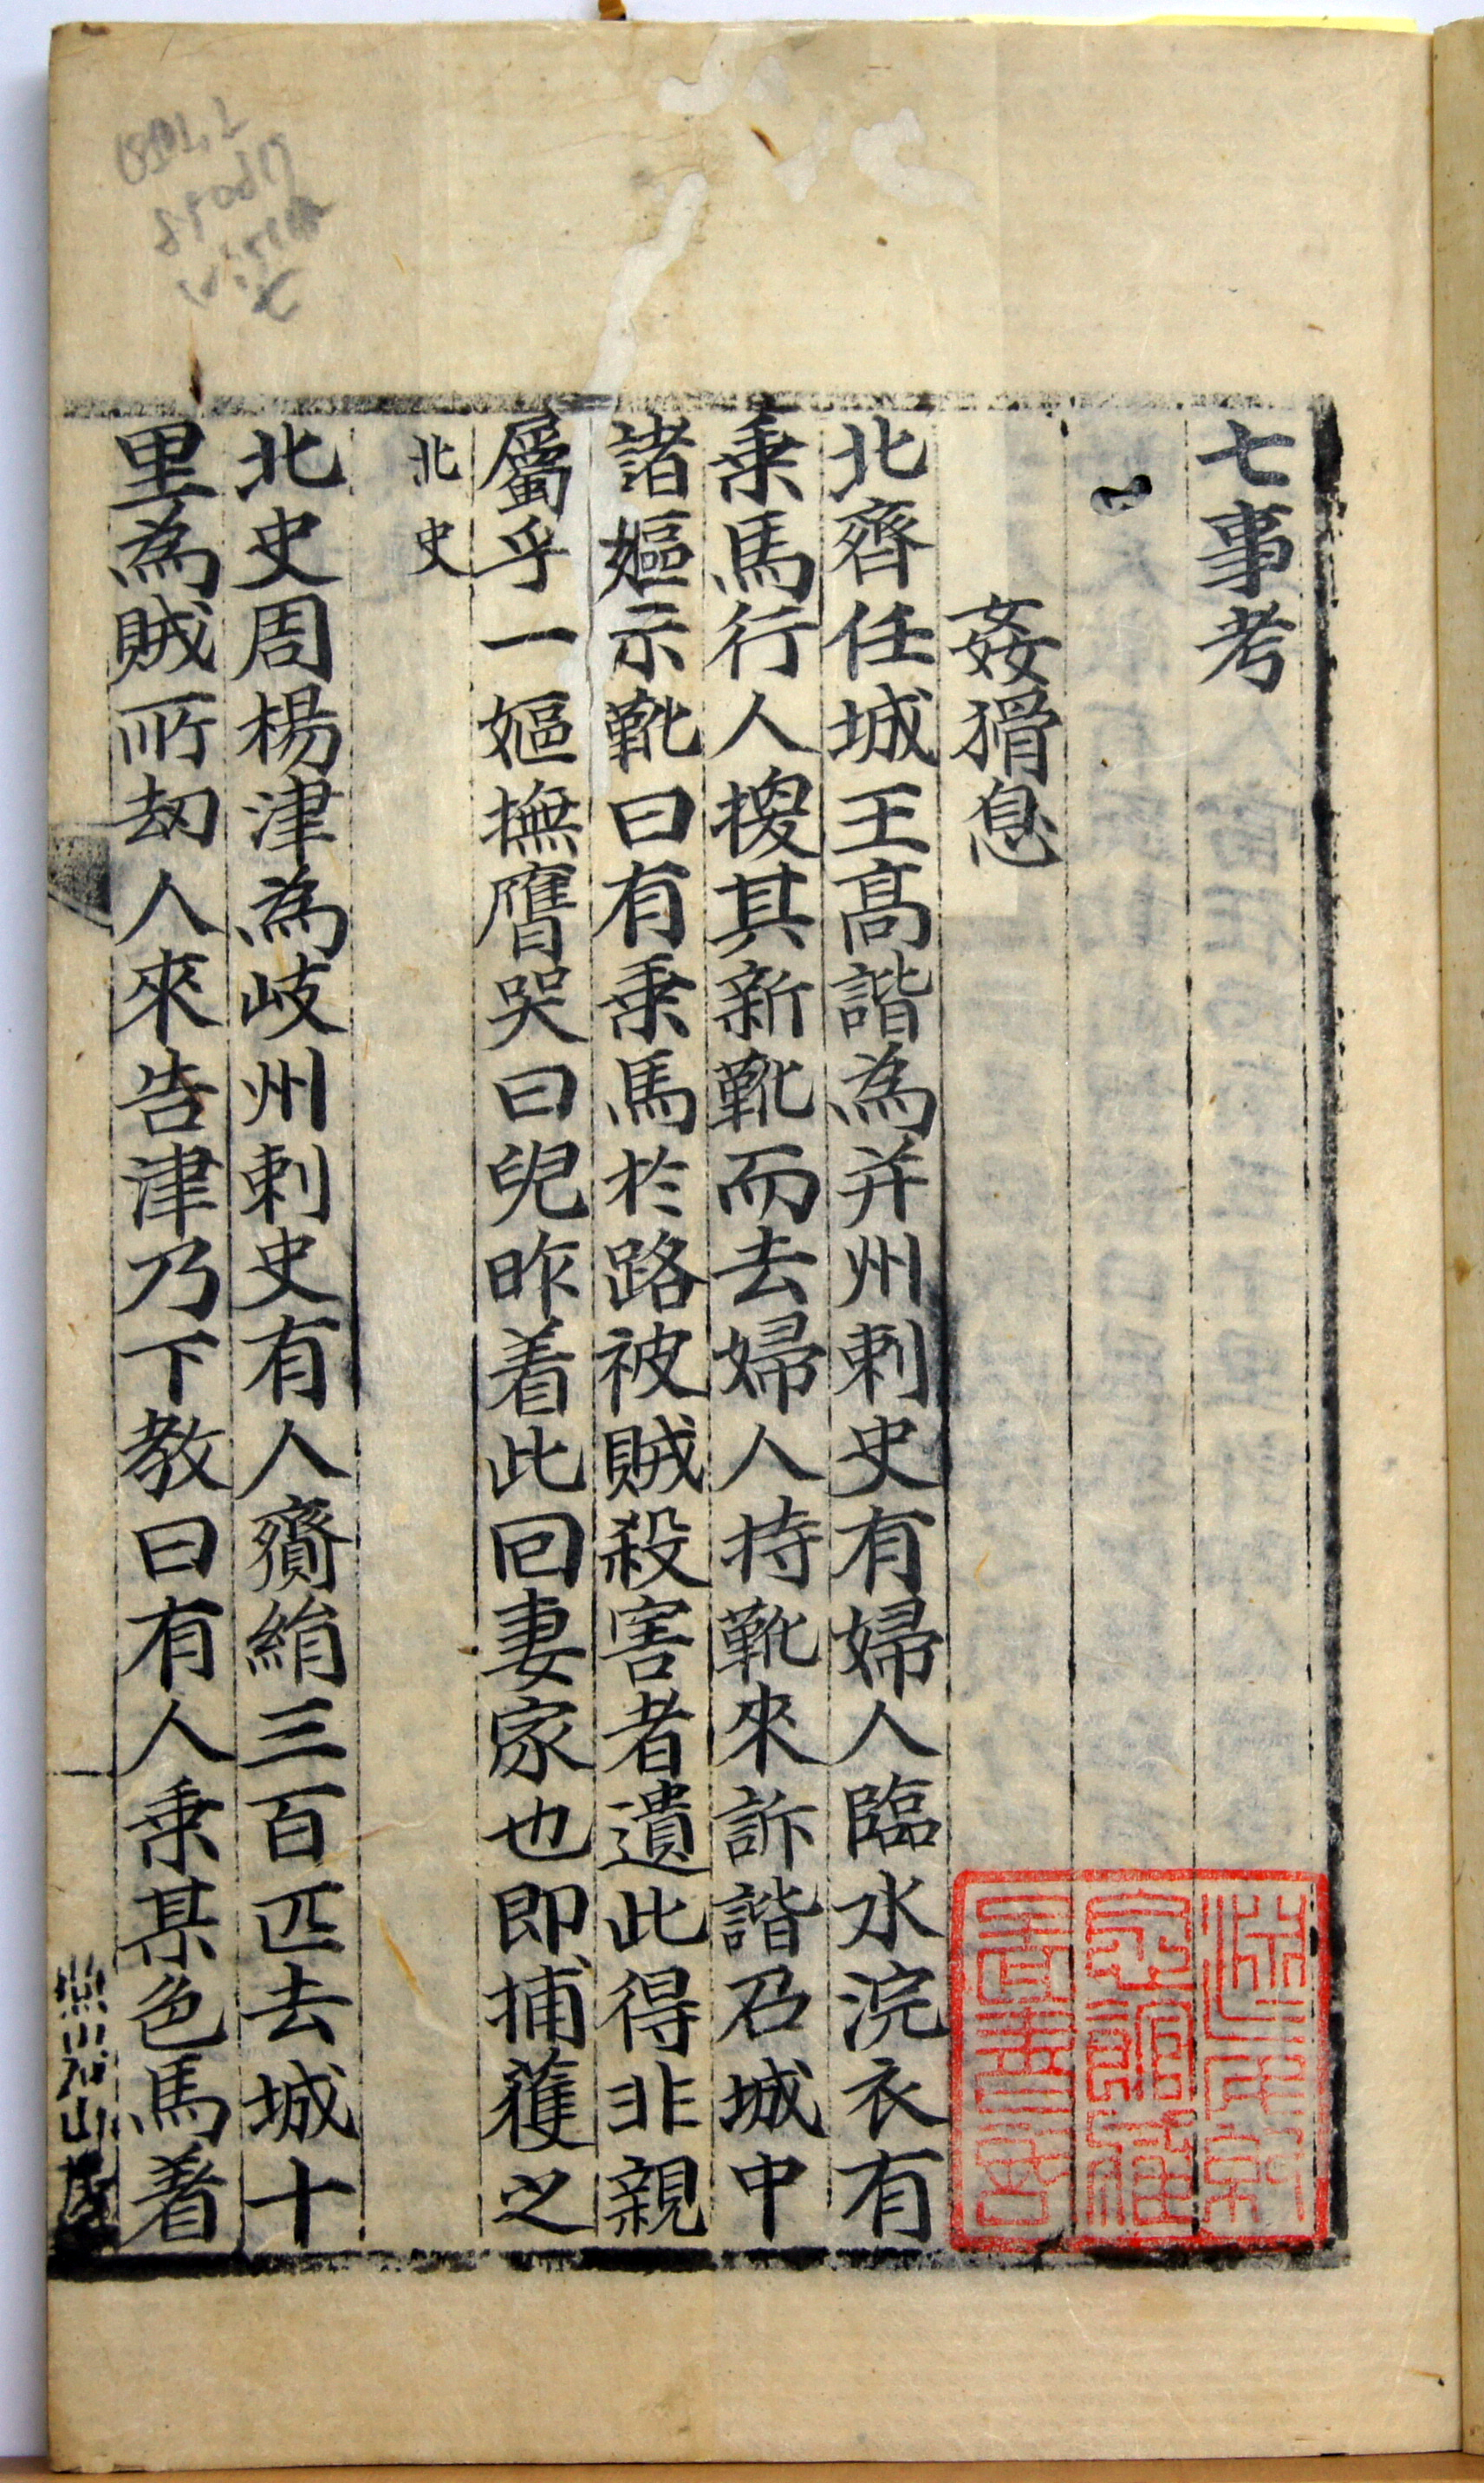 七事考
姦猾息
北齊任城王高諧為并州刺史有婦人臨水浣衣有
乗馬行人搜其新靴而去婦人持靴來訴諧召城中
諸嫗示靴曰有乗馬於路被賊殺害者遺此得非親
屬乎一嫗撫膺哭曰兒昨着此回妻家也即捕獲之
北史
北史周楊津為岐州刺史有人齎絹三百匹去城十
里為賊所劫人來告津乃下教曰有人乗某色馬着